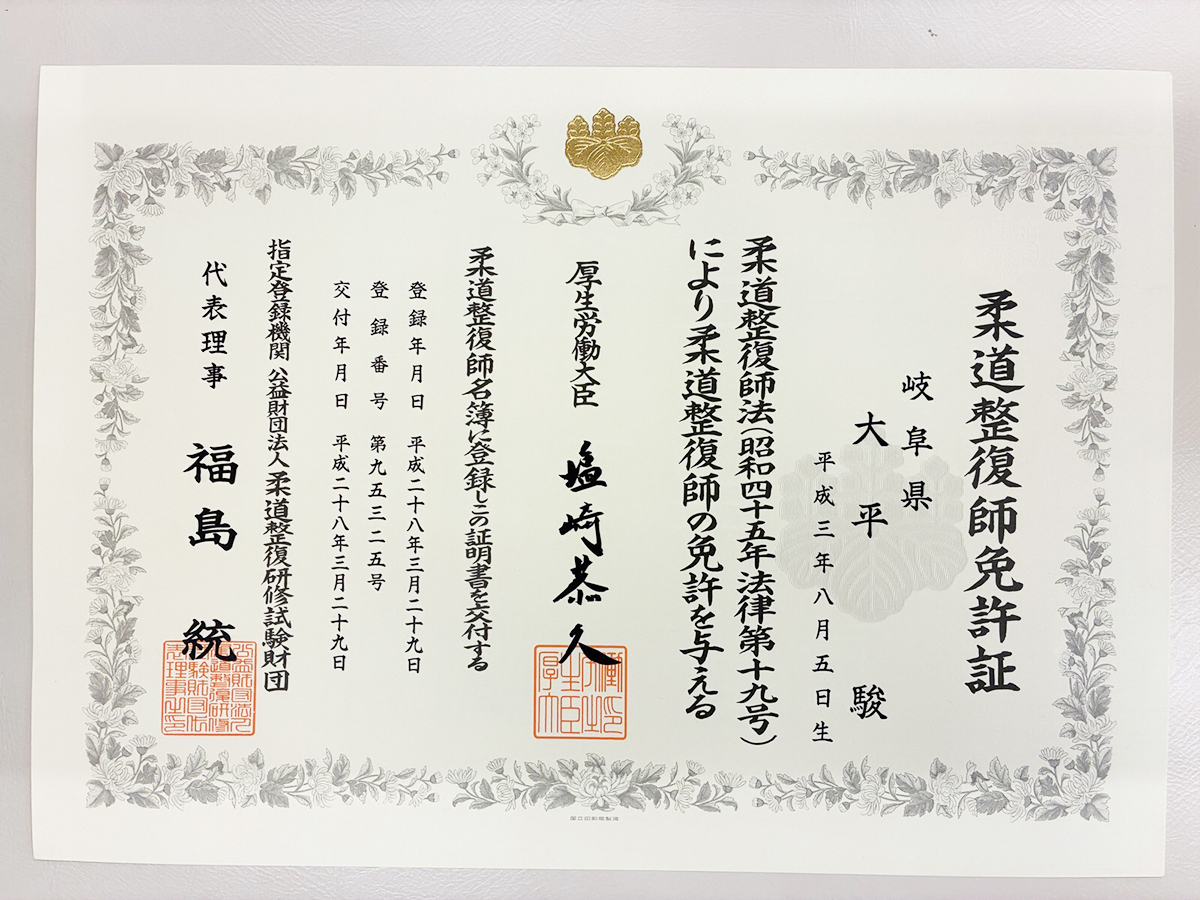 柔道整復師免許証
岐阜県
大平 駿
平成三年八月五日生
柔道整復師法(昭和四十五年法律第十九号)
により柔道整復師の免許を与える
厚生労働大臣 塩崎恭久
柔道整復師名簿に登録しこの証明書を交付する
登録年月日 平成二十八年三月二十九日
登録番号 第九五三二五号
交付年月日 平成二十八年三月二十九日
指定登録機関 公益財団法人 柔道整復研修試験財団
代表理事 福島 統
国立印刷局製造